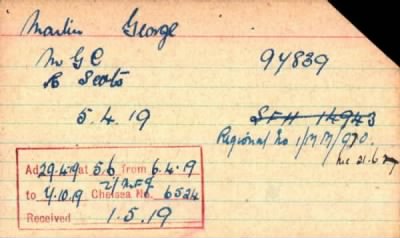 Martin George
M G C 94839
R Scots
5.4.19 S F H 14943
Regional No 1/MM/970.
21.6
Ad 29.4.19 at 5.6 from 6.4.19
to 4.10.19 Chelsea No. 6524
Received 1.5.19